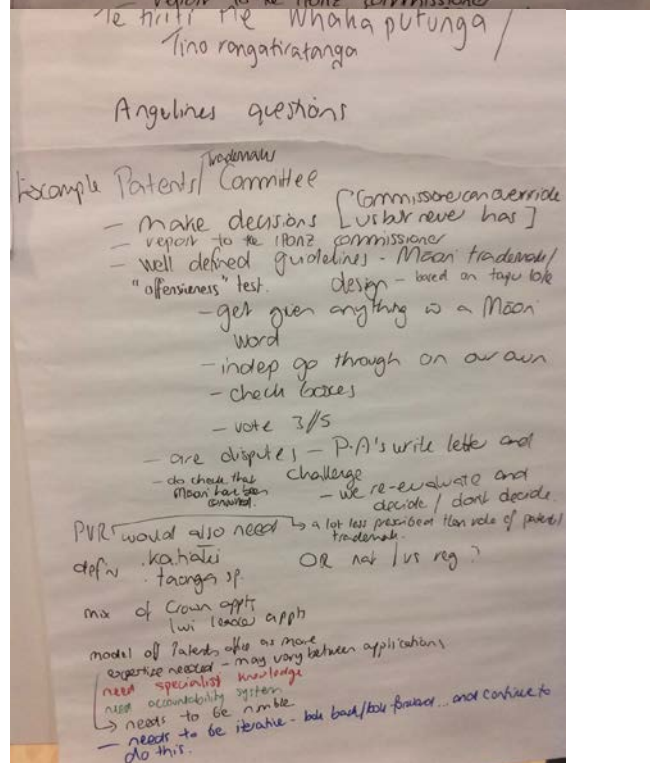 report to the IPONZ commissioner
Te tiriti Me Whaka putunga /
Tino rangatiratanga
Angelines questions
Trademark
Example Patents/ Committee
- make decisions [Commissioner can override
us but never has]
- report to the IPONZ commissioner
- well defined guidelines - Maori trademark/
"offensiveness" test. design - based on tapu
- get given anything w a Maori
word
- indep go through on our own
- check boxes
- vote 3/5
- are disputes - P.A's write letter and
challenge
- do check that
Maori have been
consulted.
- we re-evaluate and
decide / dont decide.
PVR would also need → a lot less prescribed than role of patent/
trademark.
defn . kaitiaki OR nat / vs reg ?
. taonga sp.
mix of Crown appts
Iwi leader appts
model of Patents office as more
expertise needed - may vary between applications
need specialist knowledge
need accountability system
→ needs to be nimble
- needs to be iterative - look back/look forward... and continue to
do this.